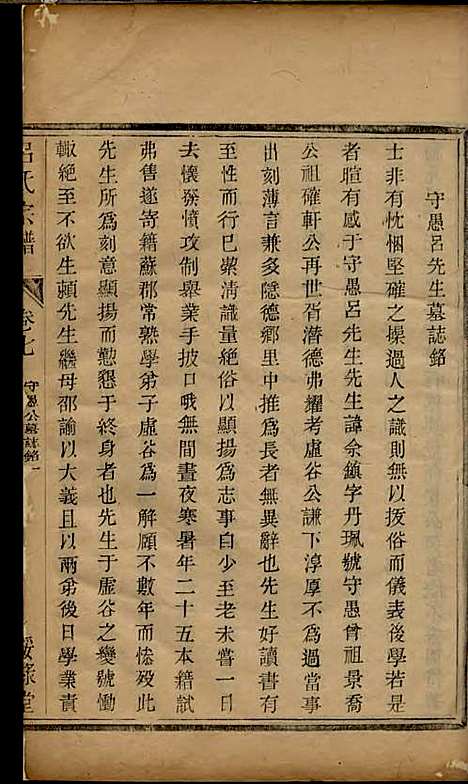 守愚呂先生墓誌銘
士非有忱悃堅確之操過人之識則無以拔俗而儀表後學若是
者暄有感于守愚呂先生先生諱佘鎮字丹珮號守愚曾祖景喬
公祖確軒公再世省潛德弗耀考虛谷公謙下淳厚不為過當事
出刻薄言兼多隱德鄉里中推為長者無異辭也先生好讀書有
至性而行已縈清識量絕俗以顯揚為志事自少至老未嘗一日
去懷發憤攻制舉業手披口哦無間晝夜寒暑年二十五本籍試
弗售遂寄籍蘇郡常熟學弟子虛谷為一解願不數年而愴歿時
先生所為刻意顯揚而懃懇于終身者也先生于虛谷之變號慟
輒絕至不欲生頼先生繼母邵諭以大義且以兩弟後日學業責
呂氏宗譜
卷七
守愚公墓誌銘
一
綏祿堂